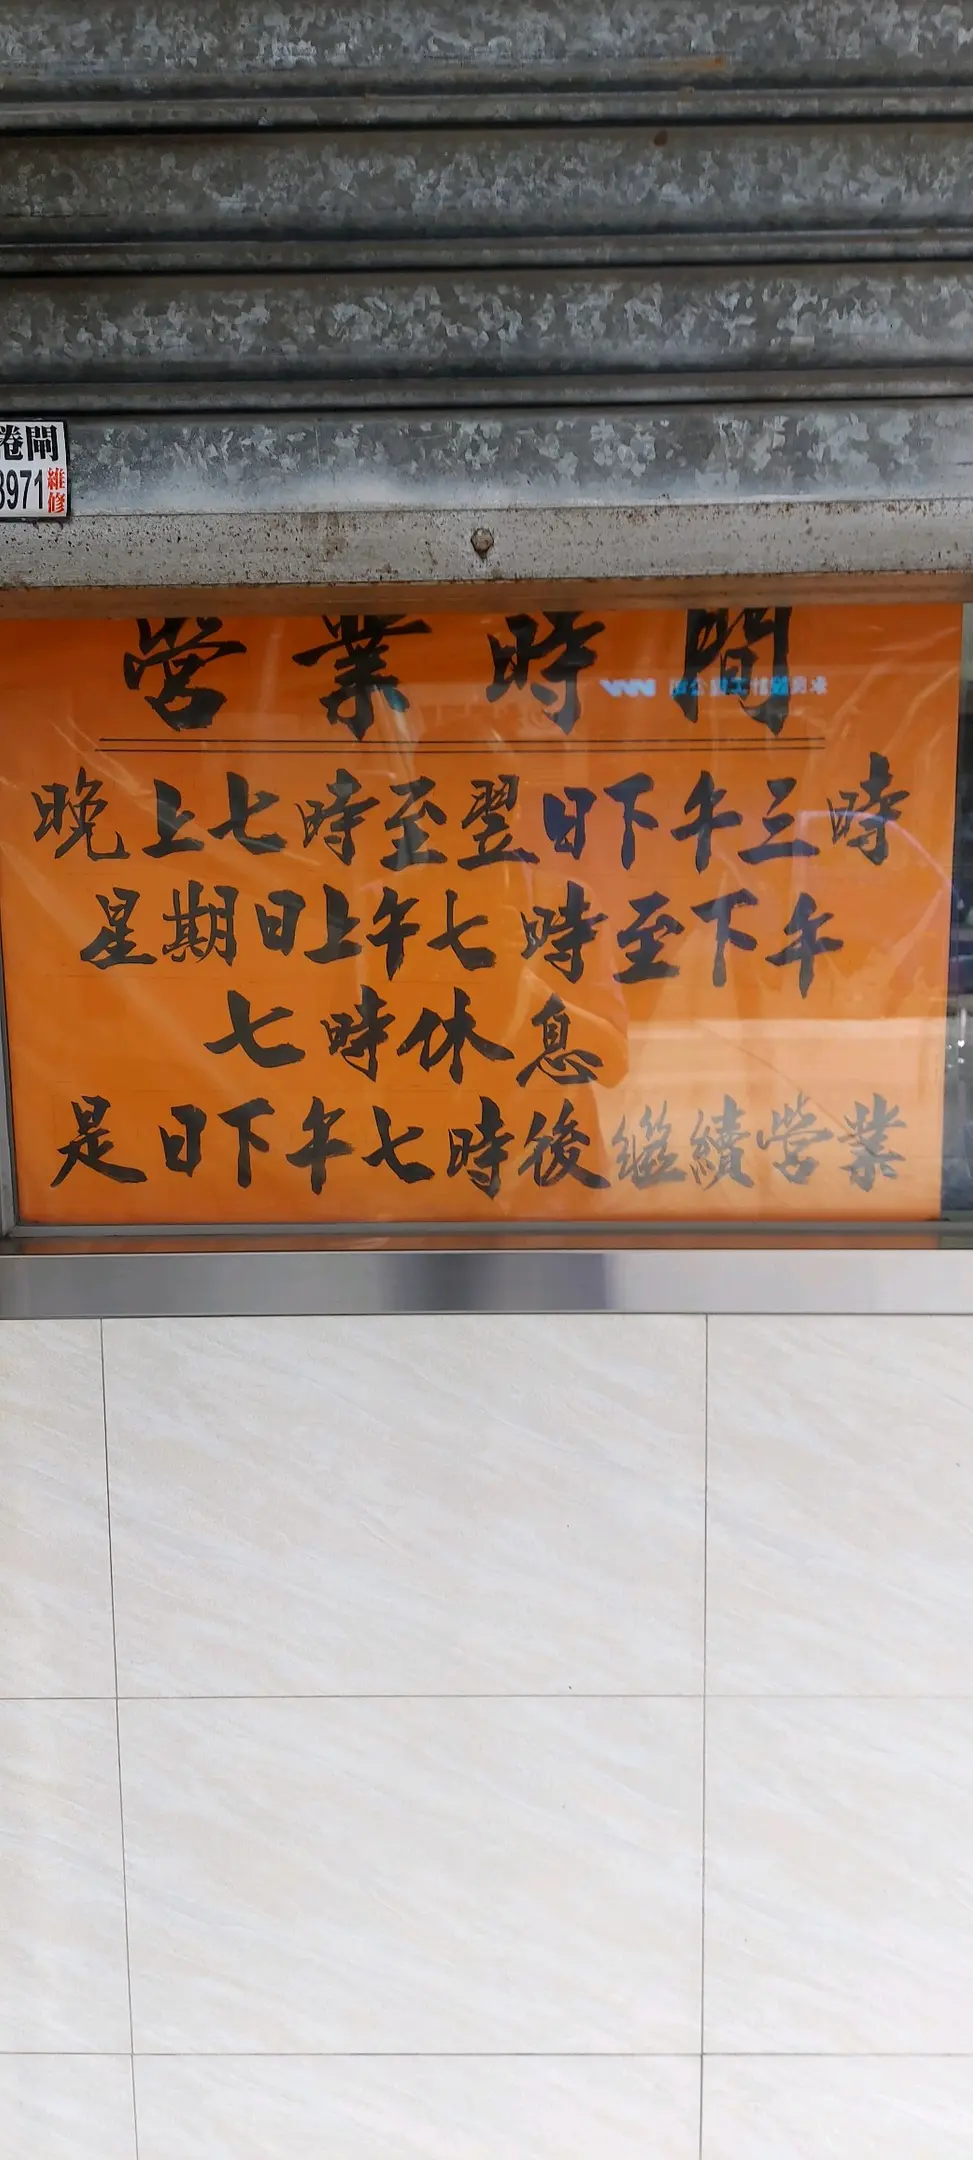 捲閘
3971 維修
營業時間
晚上七時至翌日下午三時
星期日上午七時至下午
七時休息
是日下午七時後繼續營業